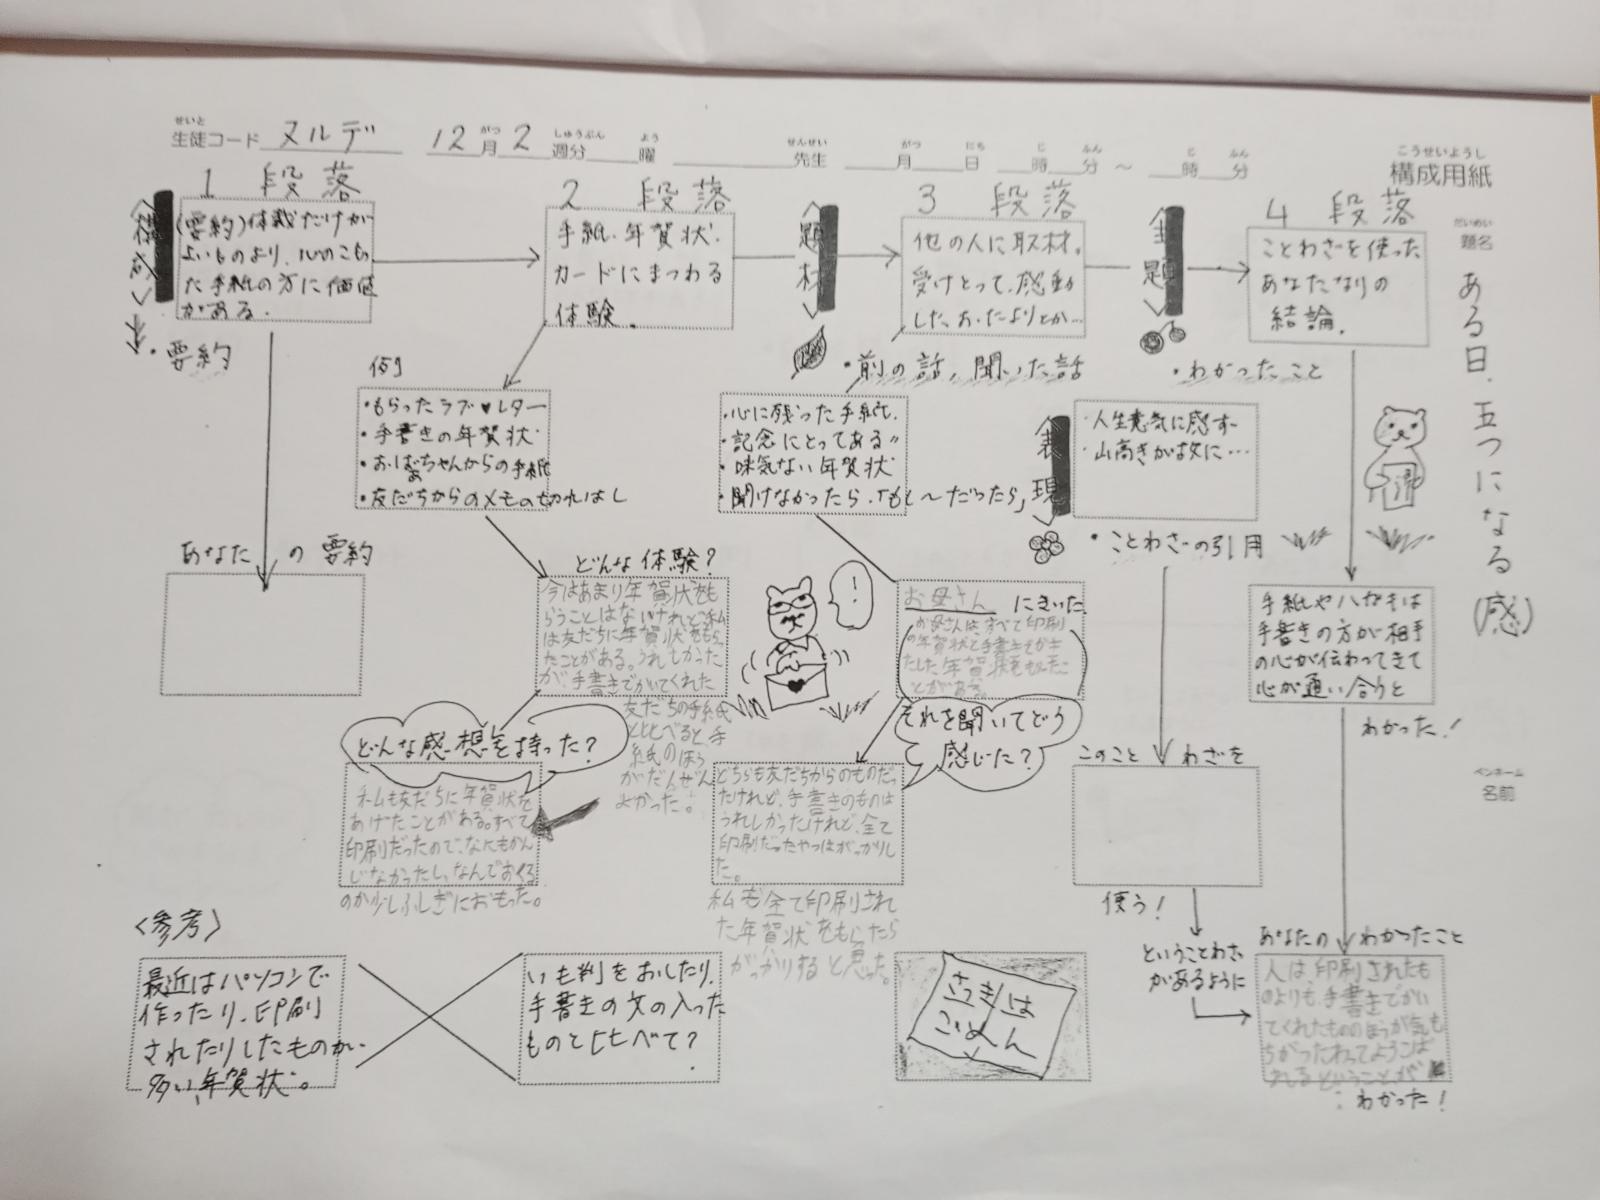 せいと
生徒コード ヌルデ 12月2週分 曜 先生 月 日 時 分 ～ 時 分
がつ しゅうぶん よう せんせい がつ にち じ ふん じ ふん
こうせいようし
構成用紙
だいめい
題名
ある日、五つになる(感)
ペンネーム
名前
1 段落
〈構成〉
(要約)体裁だけが
よいものより、心のこもっ
た手紙の方に価値
がある。
・要約
2 段落
手紙、年賀状、
カードにまつわる
体験。
〈題材〉
3 段落
他の人に取材。
受けとって、感動
した、おたよりとか…
・前の話，聞いた話
〈主題〉
4 段落
ことわざを使った
あなたなりの
結論。
・わかったこと
例
・もらったラブ♥レター
・手書きの年賀状
・おばあちゃんからの手紙
・友だちからのメモの切れはし
・心に残った手紙。
・記念にとってある〃
・味気ない年賀状
・聞けなかったら、「もし～だったら」
〈表現〉
・人生意気に感ず
・山高きが故に…
・ことわざの引用
あなたの要約
どんな体験？
今はあまり年賀状をも
らうことはないけれど、私
は友だちに年賀状をもらっ
たことがある。うれしかった
が、手書きでかいてくれた
友だちの手紙
とくらべると、手
紙のほう
がだんぜん
よかった。
どんな感想を持った？
チームも友だちに年賀状を
あげたことがある。すべて
印刷だったので、なにもかん
じなかったし、なんでおくる
のか少しふしぎにおもった。
！
お母さん にきいた。
お母さんは、すべて印刷
の年賀状と、手書きでかき
たした年賀状をもらったこ
とがある。
それを聞いてどう
感じた？
どちらも友だちからのものだっ
たけれど、手書きのものは
うれしかったけれど、全て
印刷だったやつはがっかりし
た。
私も全て印刷され
た年賀状をもらったら
がっかりすると思った。
手紙やハガキは
手書きの方が相手
の心が伝わってきて
心が通い合うと
わかった！
このことわざを
使う！
ということわざ
があるように
あなたのわかったこと
人は、印刷されたも
のよりも、手書きでかい
てくれたもののほうが気も
ちがつたわってよろこば
れるということが
わかった！
〈参考〉
最近はパソコンで
作ったり、印刷
されたりしたものが、
多い年賀状。
いも判をおしたり、
手書きの文の入った
ものとくらべて？